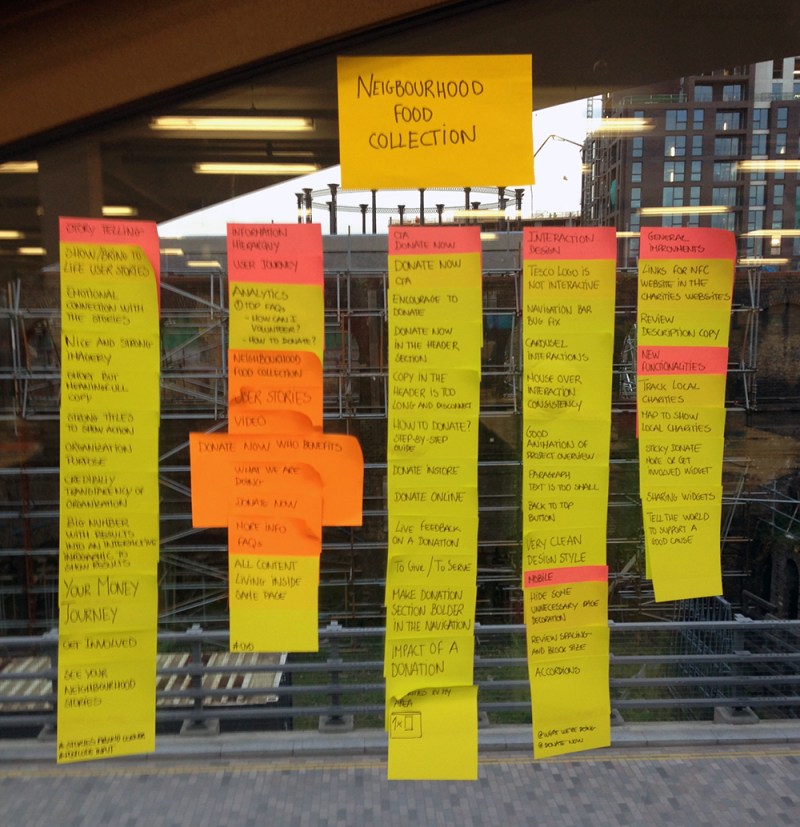 NEIGBOURHOOD
FOOD
COLLECTION
STORY TELLING
SHOW/BRING TO
LIFE USER STORIES
EMOTIONAL
CONNECTION WITH
THE STORIES
NICE AND STRONG
IMAGERY
SHORT BUT
MEANINGFULL
COPY
STRONG TITLES
TO SHOW ACTION
ORGANIZATION
PURPOSE
CREDIBILITY
TRANSPARENCY OF
ORGANISATION
BIG NUMBER
WITH RESULTS
INTO AN INTERACTIVE
INFOGRAPHIC TO
SHOW RESULTS
YOUR MONEY
JOURNEY
GET INVOLVED
SEE YOUR
NEIGHBOURHOOD
STORIES
INFORMATION
HIERARCHY
USER JOURNEY
ANALYTICS
TOP FAQs
- HOW CAN I
VOLUNTEER?
- HOW TO DONATE?
NEIGHBOURHOOD
FOOD COLLECTION
USER STORIES
VIDEO
DONATE NOW WHO BENEFITS
WHAT WE ARE
DOING
DONATE NOW
MORE INFO
FAQs
ALL CONTENT
LIVING INSIDE
SAME PAGE
CTA
DONATE NOW
DONATE NOW
CTA
ENCOURAGE TO
DONATE
DONATE NOW
IN THE HEADER
SECTION
COPY IN THE
HEADER IS TOO
LONG AND DISCONNECT
HOW TO DONATE?
STEP-BY-STEP
GUIDE
DONATE INSTORE
DONATE ONLINE
LIVE FEEDBACK
ON A DONATION
TO GIVE / TO SERVE
MAKE DONATION
SECTION BOLDER
IN THE NAVIGATION
IMPACT OF A
DONATION
IN MY
AREA
1x
INTERACTION
DESIGN
TESCO LOGO IS
NOT INTERACTIVE
NAVIGATION BAR
BUG FIX
CAROUSEL
INTERACTIONS
MOUSE OVER
INTERACTION
CONSISTENCY
GOOD
ANIMATION OF
PROJECT OVERVIEW
PARAGRAPH
TEXT IS TOO SMALL
BACK TO TOP
BUTTON
VERY CLEAN
DESIGN STYLE
MOBILE
HIDE SOME
UNNECESSARY PAGE
DECORATION
REVIEW SPACING
AND BLOCK SIZE
ACCORDIONS
@WHAT WE'RE DOING
@DONATE NOW
GENERAL
IMPROVMENTS
LINKS FOR NFC
WEBSITE IN THE
CHARITIES WEBSITES
REVIEW
DESCRIPTION COPY
NEW
FUNCTIONALITIES
TRACK LOCAL
CHARITIES
MAP TO SHOW
LOCAL CHARITIES
STICKY DONATE
MORE OR GET
INVOLVED WIDGET
SHARING WIDGETS
TELL THE WORLD
TO SUPPORT A
GOOD CAUSE